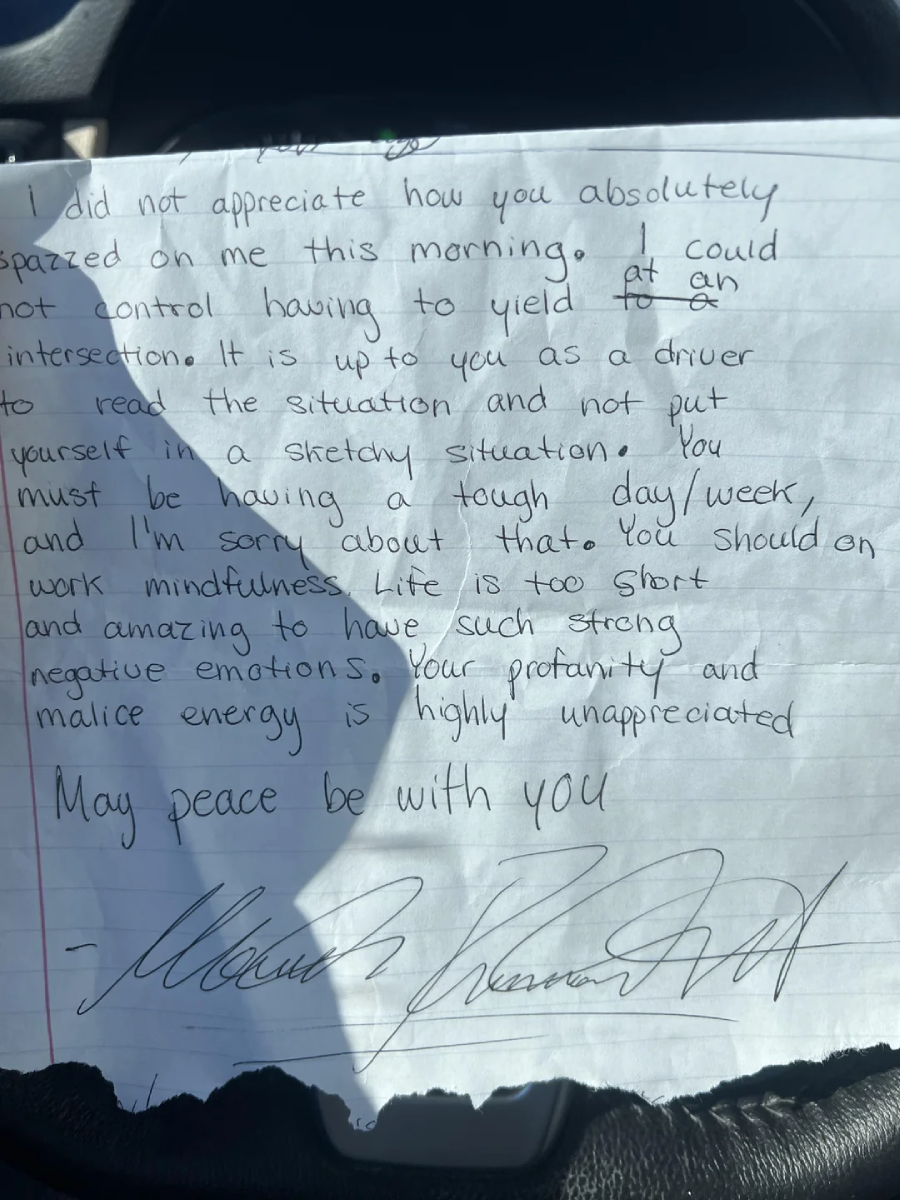 I did not appreciate how you absolutely
spazzed on me this morning. I could
at an
not control having to yield to a
intersection. It is up to you as a driver
to read the situation and not put
yourself in a sketchy situation. You
must be having a tough day/week,
and I'm sorry about that. You should on
work mindfulness. Life is too short
and amazing to have such strong
negative emotions. Your profanity and
malice energy is highly unappreciated
May peace be with you